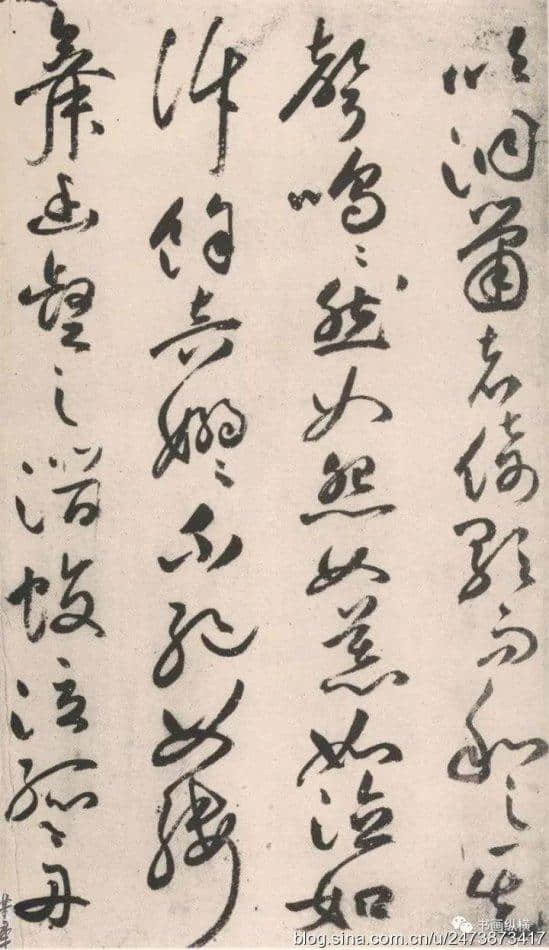 吹洞簫者倚歌而和之其
聲嗚〻然如怨如慕如泣如
訴餘音嫋〻不絕如縷
舞幽壑之潛蛟泣孤舟
书画纵横
blog.sina.com.cn/u/2473873417